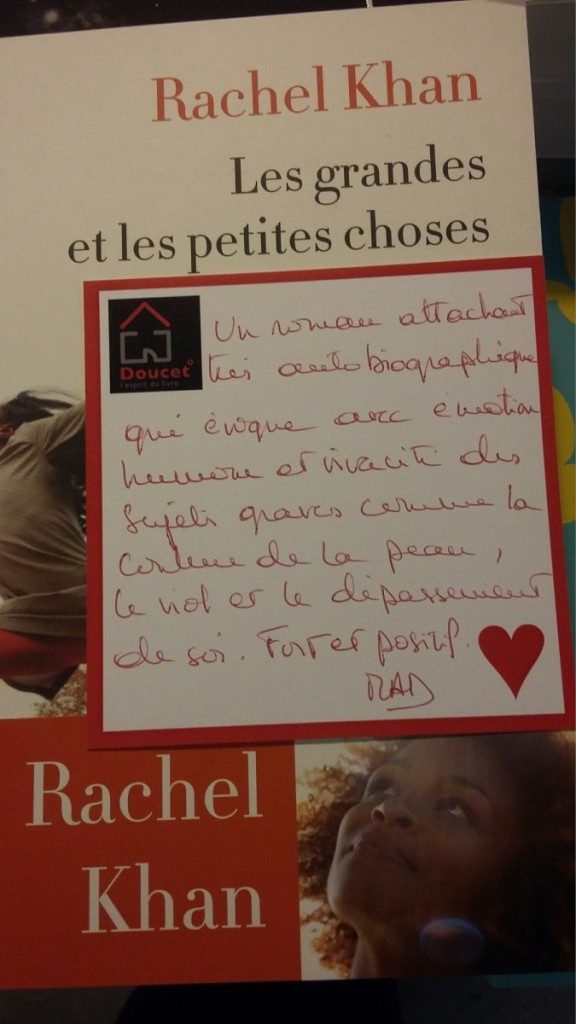 Rachel Khan
Les grandes
et les petites choses
Doucet
l'esprit du livre
Un roman attachant
très autobiographique
qui évoque avec émotion
humour et vivacité des
sujets graves comme la
couleur de la peau,
le viol et le dépassement
de soi. Fort et positif.
MAD
Rachel
Khan